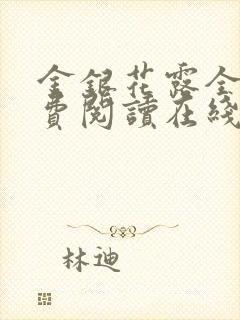 金銀花露全
費閱讀在綫
林迪